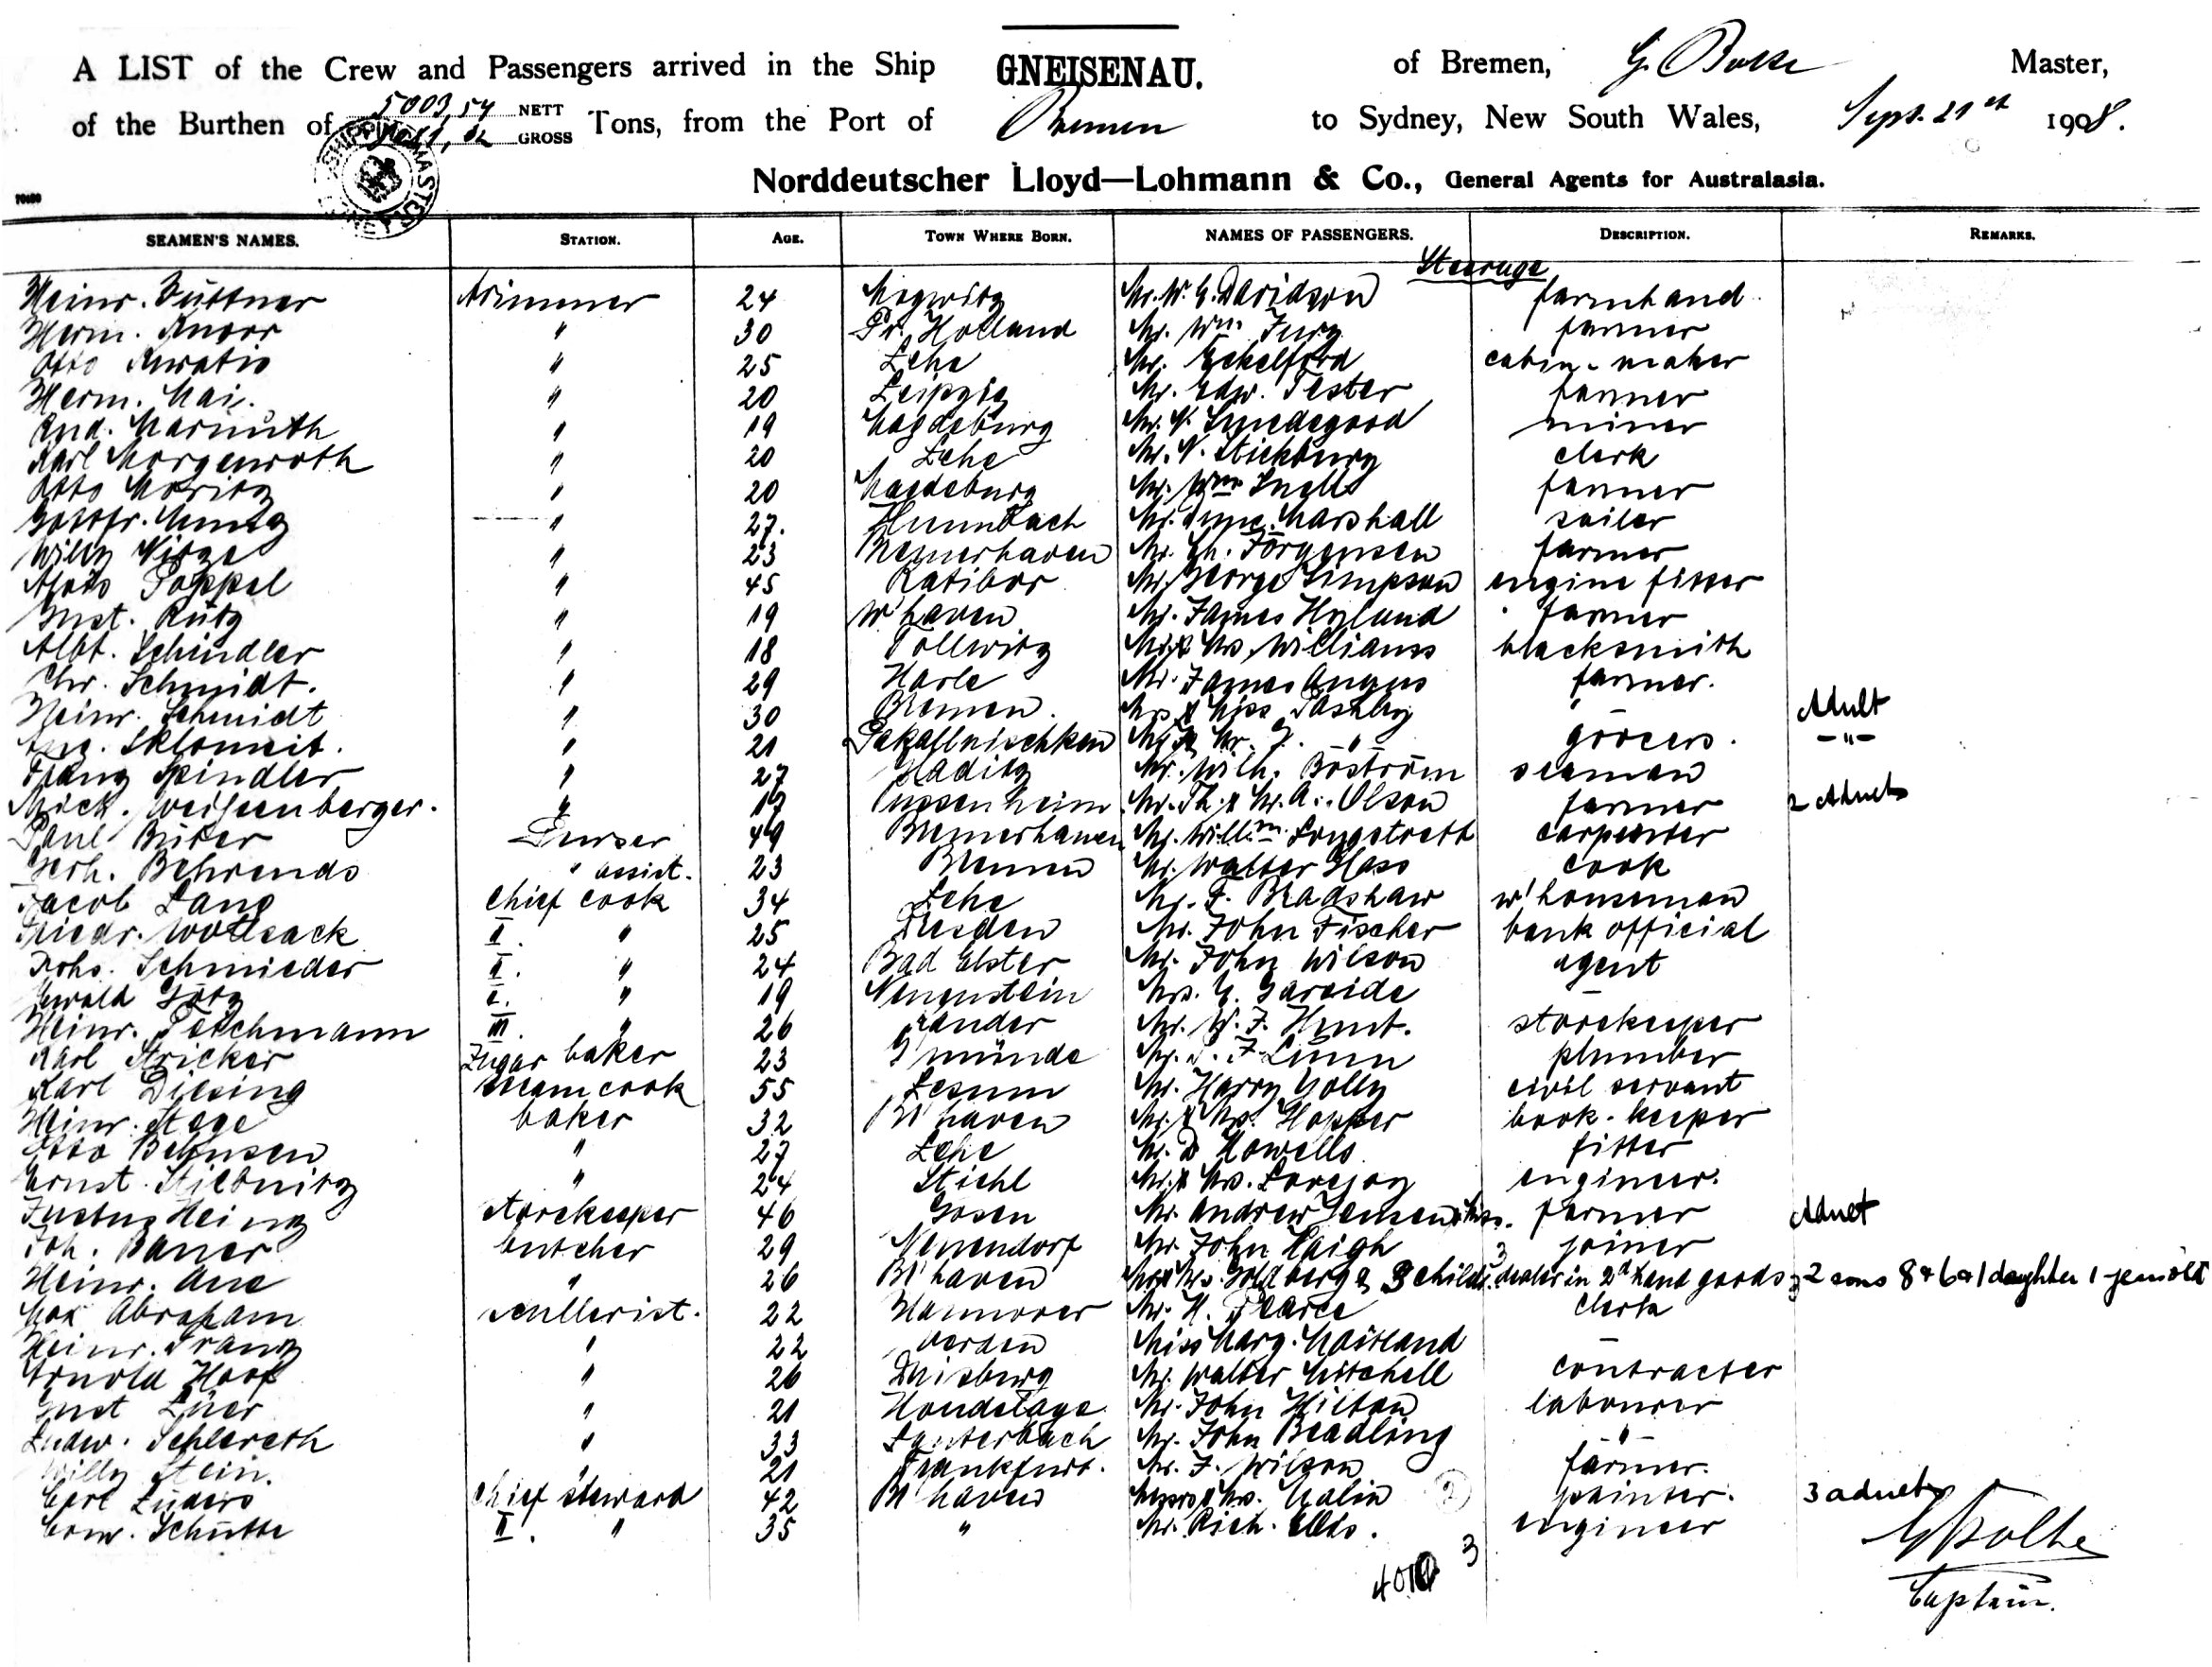 A LIST of the Crew and Passengers arrived in the Ship GNEISENAU. of Bremen, G. Bolte Master,
of the Burthen of 5003,54 NETT GROSS Tons, from the Port of Bremen to Sydney, New South Wales, Sept. 21st 1908.
SHIPPING MASTER SYDNEY
Norddeutscher Lloyd—Lohmann & Co., General Agents for Australasia.
SEAMEN'S NAMES. STATION. AGE. TOWN WHERE BORN. NAMES OF PASSENGERS. DESCRIPTION. REMARKS.
Steerage
Heinr. Büttner trimmer 24 Mr. W. G. Davidson farmhand
Herm. Knorr " 30 Pr. Holland Mr. Wm. Jury farmer
Otto Kuratis " 25 Lehe Mr. Eckelford cabin-maker
Herm. Mai. " 20 Leipzig Mr. Edw. Tester farmer
Rud. Marmuth " 19 Magdeburg Mr. V. Smedegood miner
Karl Morgenroth " 20 Lehe Mr. V. Stickbury clerk
Otto Moritz " 20 Magdeburg Mr. Wm Snell farmer
Gottfr. Muntz " 27. Mr. Marshall sailer
Willy Nitze " 23 Bremerhaven Mr. Ch. Jörgensen farmer
Alois Poppel " 45 Ratibor Mr. George Simpson engine fitter
Gust. Rütz " 19 W'haven Mr. James Hyland farmer
Albt. Schindler " 18 Pollwitz Mr. & Mrs. Williams blacksmith
Chr. Schmidt. " 29 Harle Mr. James Angus farmer.
Heinr. Schmidt " 30 Bremen. Mrs & Miss Pashley " Adult
Aug. Skloweit. " 21 Pakallnischken Mr. & Mr. J. " grocers. -"-
Franz Spindler " 27 Gladitz Mr. Wilh. Boström seaman
Mich. Weissenberger. " 19 Mr. Th. & Mr. A. Olson farmer 2 Adults
Paul Büter Purser 49 Bremerhaven Mr. Willm. Longstreth carpenter
Gerh. Behrends " assist. 23 Bremen Mr. Walter Glass cook
Jacob Lang chief cook 34 Lehe Mr. F. Bradshaw w'houseman
Friedr. Wottsack II. " 25 Dresden Mr. John Fischer bank official
Johs. Schmieder II. " 24 Bad Elster Mr. John Wilson agent
Ewald Götz II. " 19 Neuenstein Mrs. E. Garside -
Heinr. Teschmann III. " 26 Mr. W. F. Hunt. storekeeper
Karl Stricker Zugar baker 23 Gmünde Mr. S. F. Lunn plumber
Karl Diesing steam cook 55 Lesum Mr. Harry Golly civil servant
Heinr. Stege baker 32 B'haven Mr. & Mrs. Hopper book-keeper
Otto Behnsen " 27 Lehe Mr. D Howells fitter
Ernst Stiebnitz " 24 Stiehl Mr. & Mrs. Lovejoy engineer.
Justus Heinz storekeeper 46 Gosen Mr. Andrew Jensen & Mrs. farmer Adult
Joh. Bauer butcher 29 Neuendorf Mr. John Haigh joiner
Heinr. Aue " 26 B'haven Mr & Mrs. Goldberg & 3 childs. dealer in 2d hand goods 2 sons 8 & 6 & 1 daughter 1 year old
Max Abraham scullerist. 22 Hannover Mr. H. Pearce clerk
Heinr. Franz " 22 Verden Miss Marg. Maitland -
Arnold Hoof " 26 Duisburg Mr. Walter Mitchell contracter
Gust Lüer " 21 Hondelage Mr. John Hilton labourer
Ludw. Schlereth " 33 Lauterbach Mr. John Beadling "
Willy Stein. " 21 Frankfurt. Mr. F. Wilson farmer.
Carl Lüders chief steward 42 B'haven Messrs & Mrs. Malin 2 painter. 3 adults
Conr. Schütte II. " 35 " Mr. Rich. Ellis. engineer
3
G. Bolte
Captain.